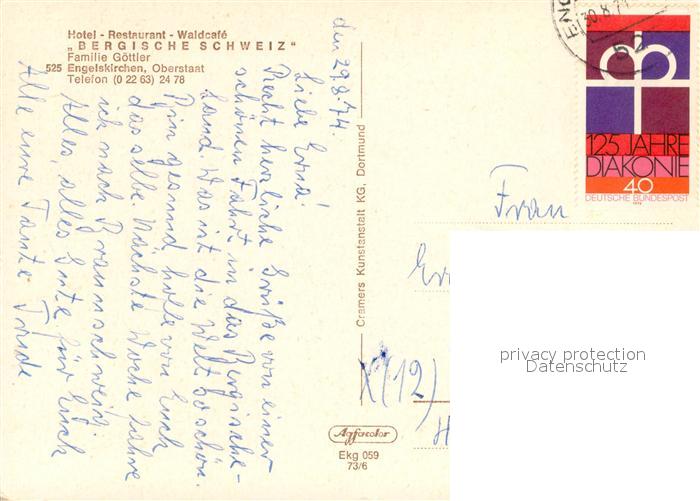 Hotel - Restaurant - Waldcafé
„BERGISCHE SCHWEIZ“
Familie Göttler
525 Engelskirchen, Oberstaat
Telefon (0 22 63) 24 78
den 29.8.74.
Liebe Erna!
Recht herzliche Grüße von einer
schönen Fahrt in das Bergische-
Land. Was ist die Welt so schön.
Bin gesund hoffe von Euch
das selbe. Nächste Woche fahre
ich nach Braunschweig.
Alles, alles Gute für Euch
Alle eure Tante Trude
Cramers Kunstanstalt KG, Dortmund
Agfacolor
Ekg 059
73/6
ENG
30.8.7
52
125 JAHRE
DIAKONIE
40
DEUTSCHE BUNDESPOST
Frau
Er
X (12)
H
privacy protection
Datenschutz